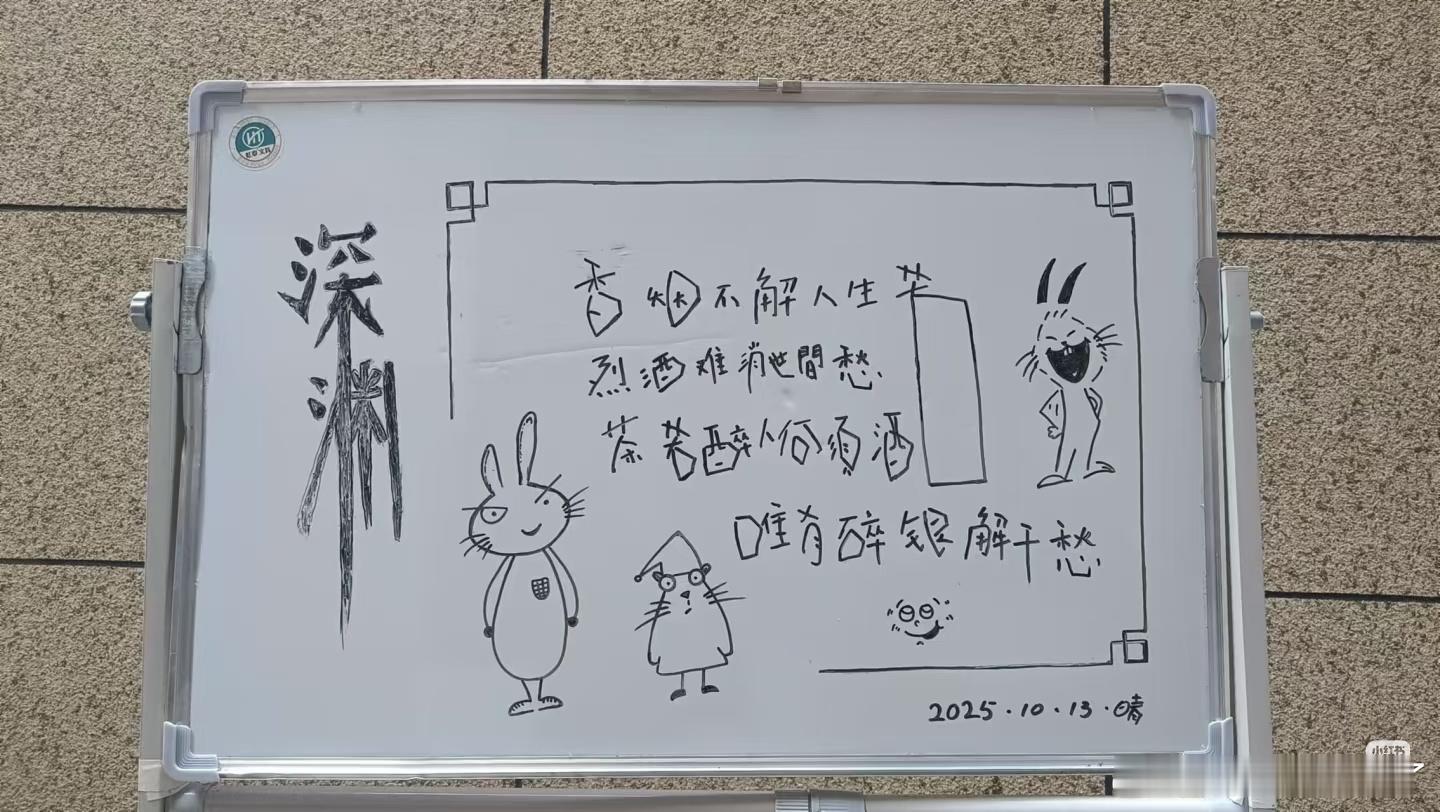 深渊
香烟不解人生苦
烈酒难消世間愁
茶若醉人何须酒
唯有碎银解千愁
2025.10.13.晴
小红书